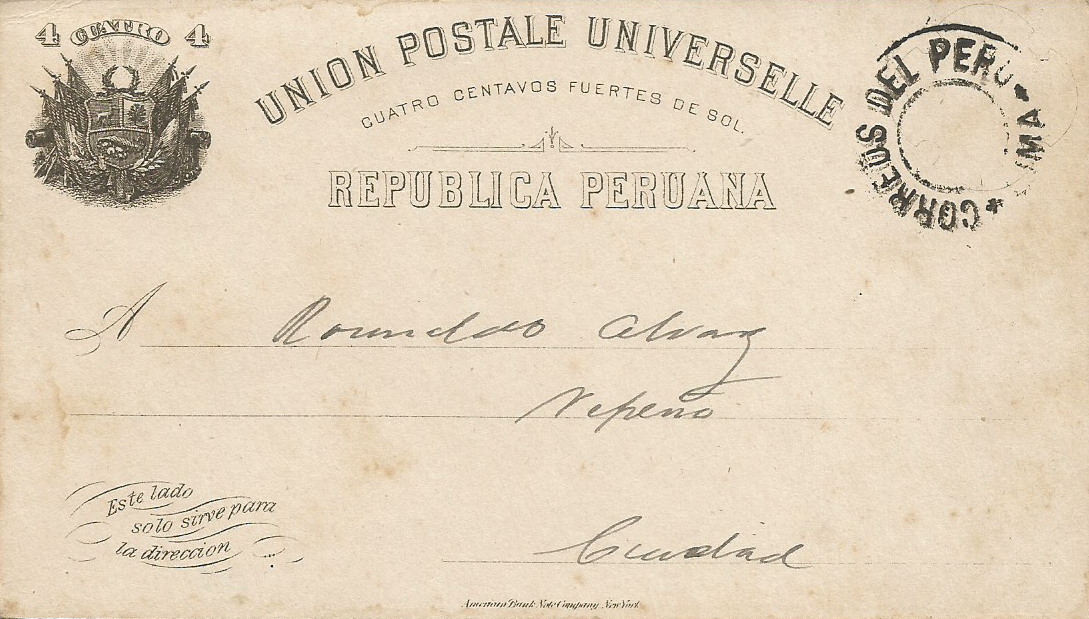 4 CUATRO 4
UNION POSTALE UNIVERSELLE
CUATRO CENTAVOS FUERTES DE SOL.
REPUBLICA PERUANA
CORREOS DEL PERU * IMA *
A Romualdo Alvarz
Nepeña
Ciudad
Este lado
solo sirve para
la direccion
American Bank Note Company New York